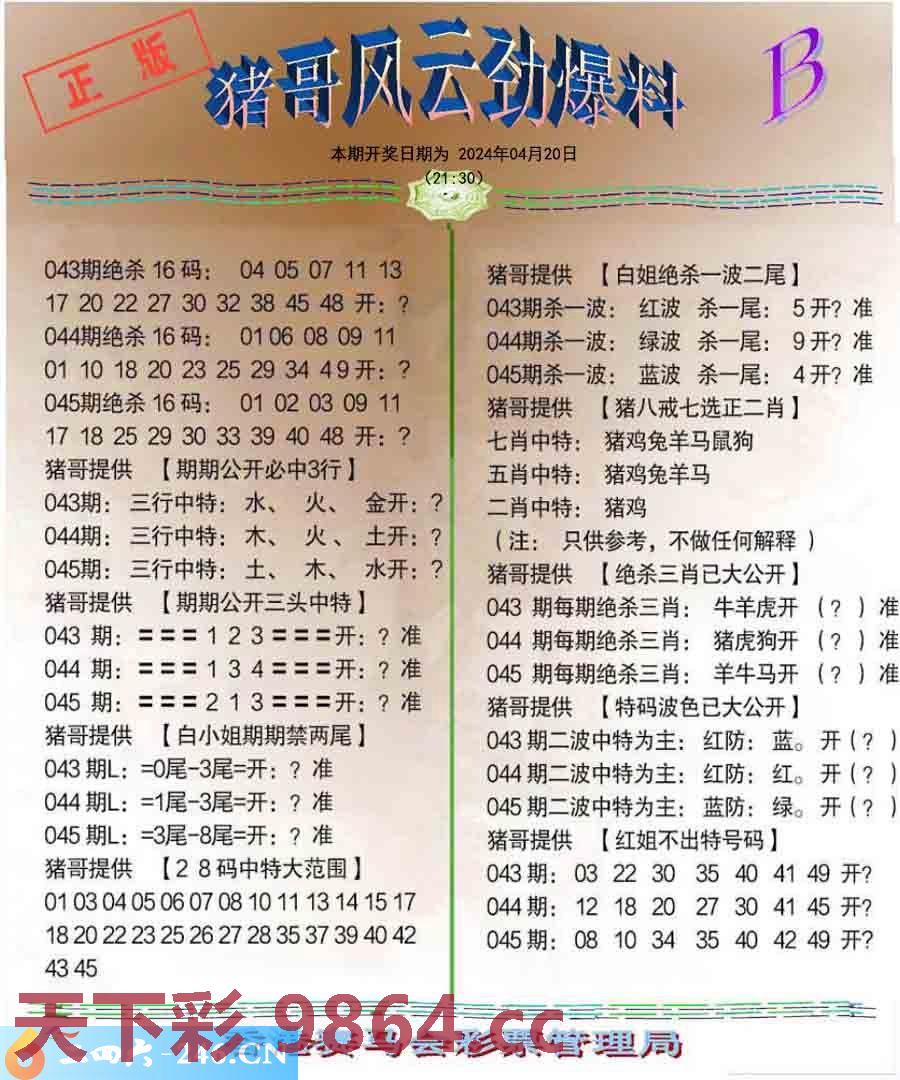 正版
猪哥风云劲爆料
B
本期开奖日期为 2024年04月20日
(21:30)
043期绝杀16码: 04 05 07 11 13
17 20 22 27 30 32 38 45 48 开:?
044期绝杀16码: 01 06 08 09 11
01 10 18 20 23 25 29 34 49开:?
045期绝杀16码: 01 02 03 09 11
17 18 25 29 30 33 39 40 48 开:?
猪哥提供 【期期公开必中3行】
043期:三行中特:水、 火、 金开:?
044期:三行中特:木、 火、 土开:?
045期:三行中特:土、 木、 水开:?
猪哥提供 【期期公开三头中特】
043 期:===123===开:?准
044 期:===134===开:?准
045 期:===213===开:?准
猪哥提供 【白小姐期期禁两尾】
043期L:=0尾-3尾=开:?准
044期L:=1尾-3尾=开:?准
045期L:=3尾-8尾=开:?准
猪哥提供 【28码中特大范围】
01 03 04 05 06 07 08 10 11 13 14 15 17
18 20 22 23 25 26 27 28 35 37 39 40 42
43 45
猪哥提供 【白姐绝杀一波二尾】
043期杀一波: 红波 杀一尾: 5开?准
044期杀一波: 绿波 杀一尾: 9开?准
045期杀一波: 蓝波 杀一尾: 4开?准
猪哥提供 【猪八戒七选正二肖】
七肖中特: 猪鸡兔羊马鼠狗
五肖中特: 猪鸡兔羊马
二肖中特: 猪鸡
(注: 只供参考,不做任何解释)
猪哥提供 【绝杀三肖已大公开】
043 期每期绝杀三肖: 牛羊虎开 (?)准
044 期每期绝杀三肖: 猪虎狗开 (?)准
045 期每期绝杀三肖: 羊牛马开 (?)准
猪哥提供 【特码波色已大公开】
043期二波中特为主:红防:蓝。开(?)
044期二波中特为主:红防:红。开(?)
045期二波中特为主:蓝防:绿。开(?)
猪哥提供 【红姐不出特号码】
043期: 03 22 30 35 40 41 49 开?
044期: 12 18 20 27 30 41 45 开?
045期: 08 10 34 35 40 42 49 开?
天下彩 9864.cc
二四六-246.CN
赛马会彩票管理局